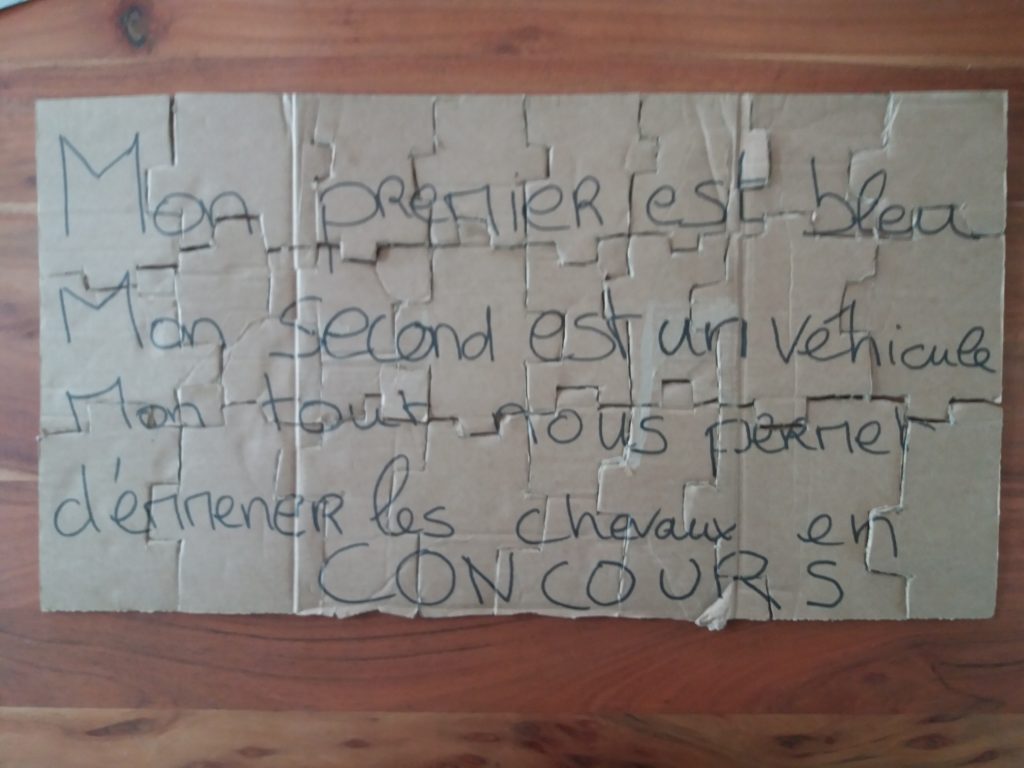 Mon premier est bleu
Mon second est un véhicule
Mon tout nous permet
d'émmener les chevaux en
CONCOURS